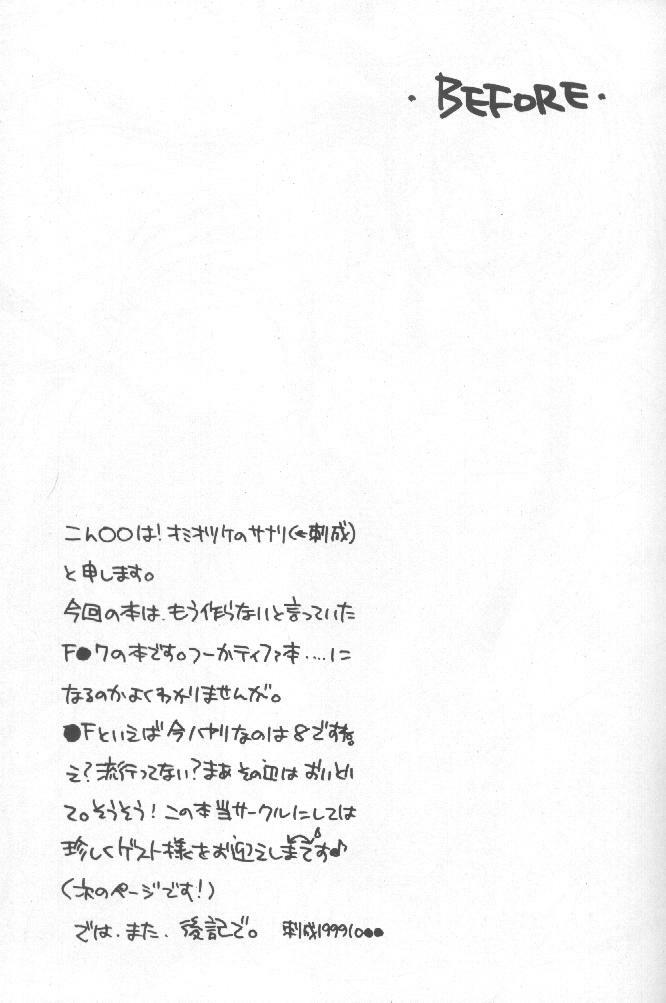 ・BEFORE・
こん〇〇は!オミオツケのサナリ(←刺成)
と申します。
今回の本は、もう作らないと言っていた
F●7の本です。つーかティファ本‥‥に
なるのかよくわかりませんが。
●Fといえば今ハヤリなのは8ですね。
え?流行ってない?まぁその辺はおいとい
て。そうそう!この本当サークルにしては
珍しくゲスト様をお迎えしてます♪
(次のページです!)
では、また、後記で。 刺成199910●●